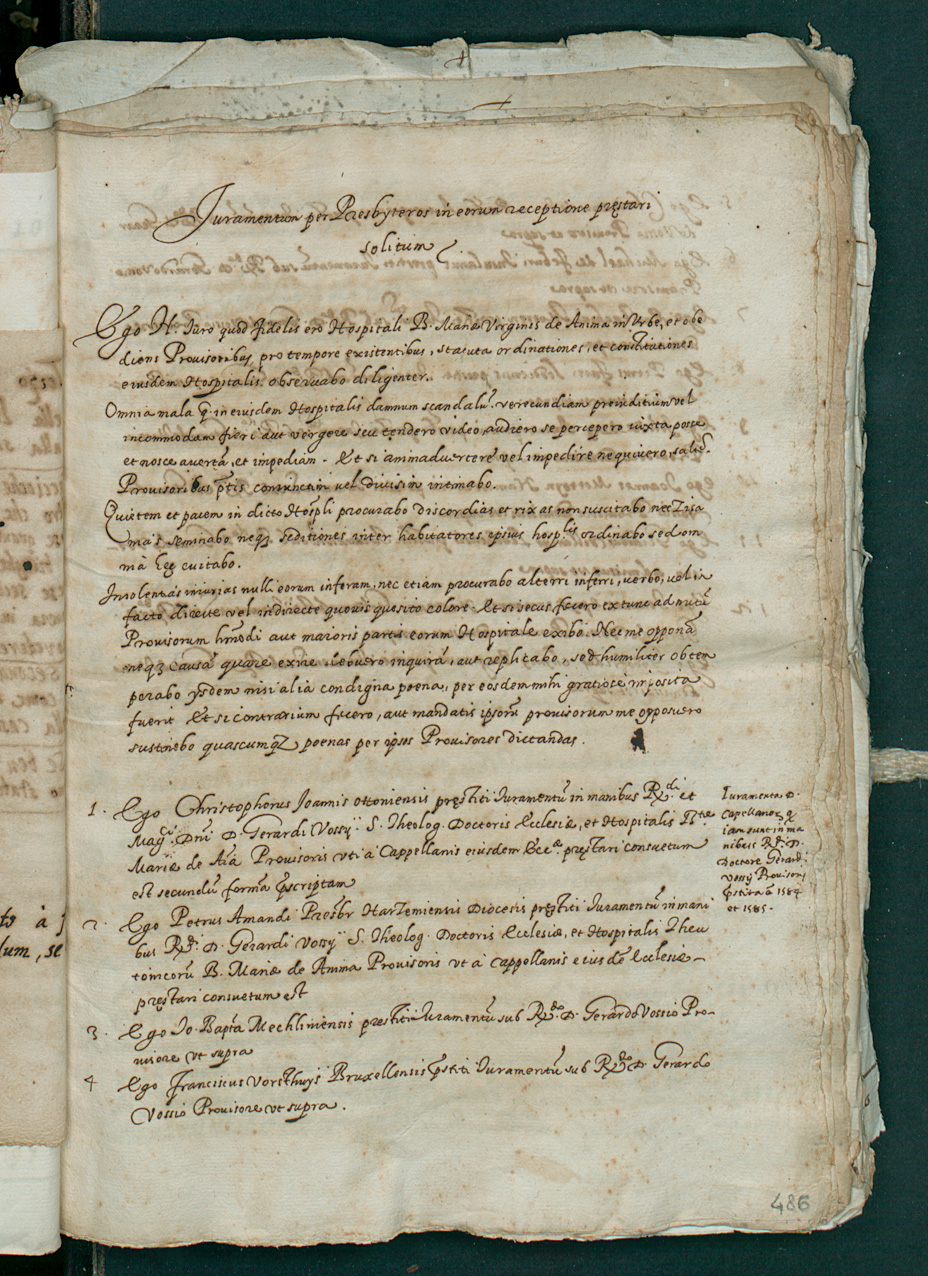 Juramentum per Presbyteros in eorum receptione pręstari
solitum
Ego N. Iuro quod fidelis ero Hospitali B. Mariæ Virginis de Anima in Urbe, et obe
diens Provisoribus pro tempore existentibus, statuta ordinationes, et constitutiones
eiusdem Hospitalis observabo diligenter.
Omnia mala q̃ in eiusdem Hospitalis damnum scandalũ verecundiam preiuditium vel
incommodam fieri aut vergere seu tendere video, audiero se percepero iuxta posse
et nosce avertã, et impediam. Et si animadvertere vel impedire nequivero, saltẽ
Provisoribus p̃tis coniunctim vel divisim intimabo.
Quietem et pacem in dicto Hosp̃li procurabo discordias et rixas non suscitabo nec Ziza
mas seminabo neqȝ seditiones inter habitatores ipsius hosp.lis ordinabo sed om
nia hęc evitabo.
Insolentias iniurias nulli eorum inferam, nec etiam procurabo alterri inferi, verbo, vel in
facto directe vel indirecte quovis quesito colore. Et si secus fecero extunc ad nutũ
Provisorum hm̃odi aut maioris partis eorum Hospitale exibo. Nec me opponã
neqȝ causã quare exire debuero inquirã, aut replicabo, sed humiliter obtem
perabo ysdem nisi alia condigna poena, per eosdem mihi gratiose imposita
fuerit Et si contrarium fecero, aut mandatis ipsorũ provisorum me opposuero
sustinebo quascumqȝ poenas per ipsos Provisores dictandas.
1. Ego Christophorus Joannis ottoniensis pręstiti Iuramentũ in manibus R.di et
Mag.ci Dñi D. Gerardi Vossÿ S. Theolog. Doctoris Ecclesiæ, et Hospitalis
Mariæ de Aĩa Provisoris uti à Cappellanis eiusdem Ecc.æ pręstari consuetum
est secundũ formã p̃scriptam
2 Ego Petrus Amandi Presbr Harlemiensis Diocesis pręstiti Iuramentũ in mani
bus R.di D. Gerardi Vossÿ S. Theolog. Doctoris Ecclesiæ, et Hospitalis Theu
tonicorũ B. Mariæ de Anima Provisoris ut à Cappellanis eiusdẽ Ecclesiæ
pręstari consuetum est
3 Ego Io. Bapta Mechliniensis prestiti Iuramentũ sub R.do D. Gerardo Vossio Pro-
visore ut supra
4 Ego Franciscus Vorsthuys Bruxellensis p̃stiti Iuramentũ sub R.do D. Gerardo
Vossio Provisore ut supra.
Iuramenta D.
Capellanor. q̃
iam sunt in ma
nibus R.di D.
Doctore Gerard.
Vossÿ Provisori
p̃stita ã 1584
et 1585.
486